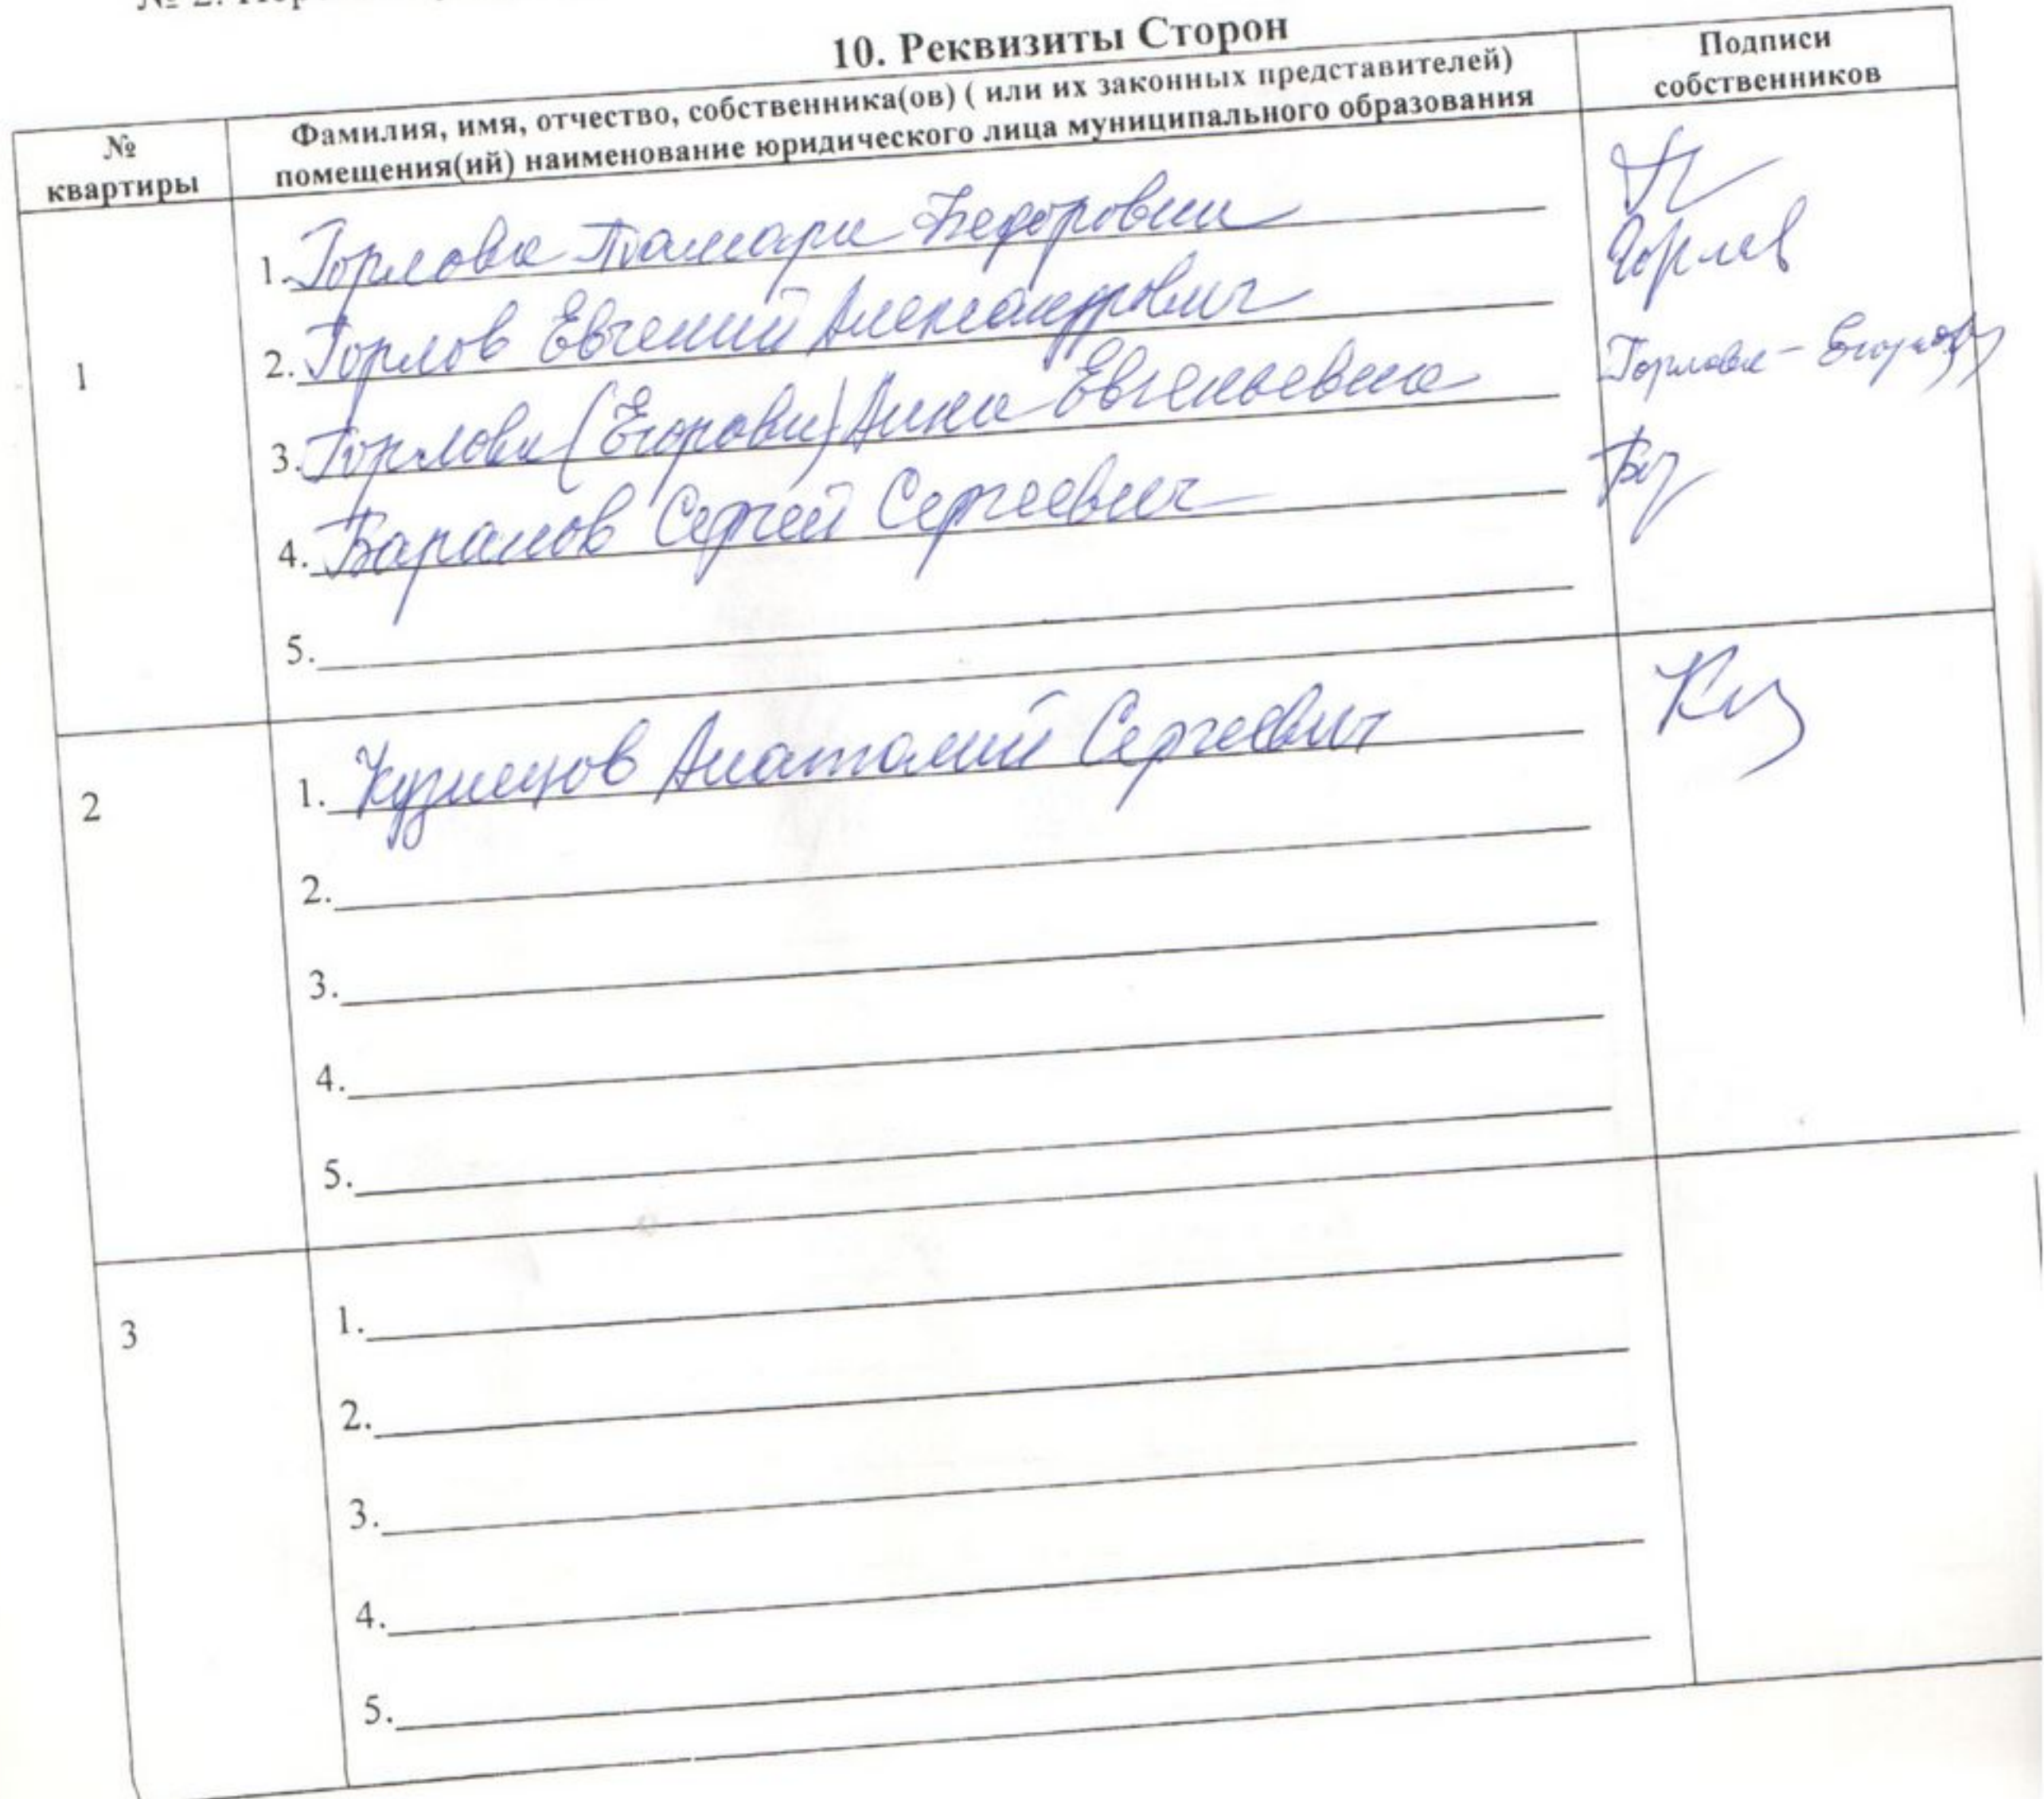 10. Реквизиты Сторон
№ квартиры
Фамилия, имя, отчество, собственника(ов) ( или их законных представителей)
помещения(ий) наименование юридического лица муниципального образования
Подписи
собственников
1
1. Горлова Тамара Федоровна
2. Горлов Евгений Александрович
3. Горлова (Егорова) Анна Евгеньевна
4. Баранов Сергей Сергеевич
5.
Горлов
Горлова - Егорова
2
1. Кузнецов Анатолий Сергеевич
2.
3.
4.
5.
3
1.
2.
3.
4.
5.